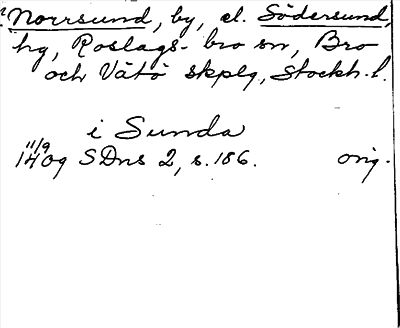 Norrsund, by, el. Södersund,
hg, Roslags-bro sn, Bro
och Vätö skplg, Stockh. l.
i Sunda
11/9
1409 SDns 2, s. 186. orig.